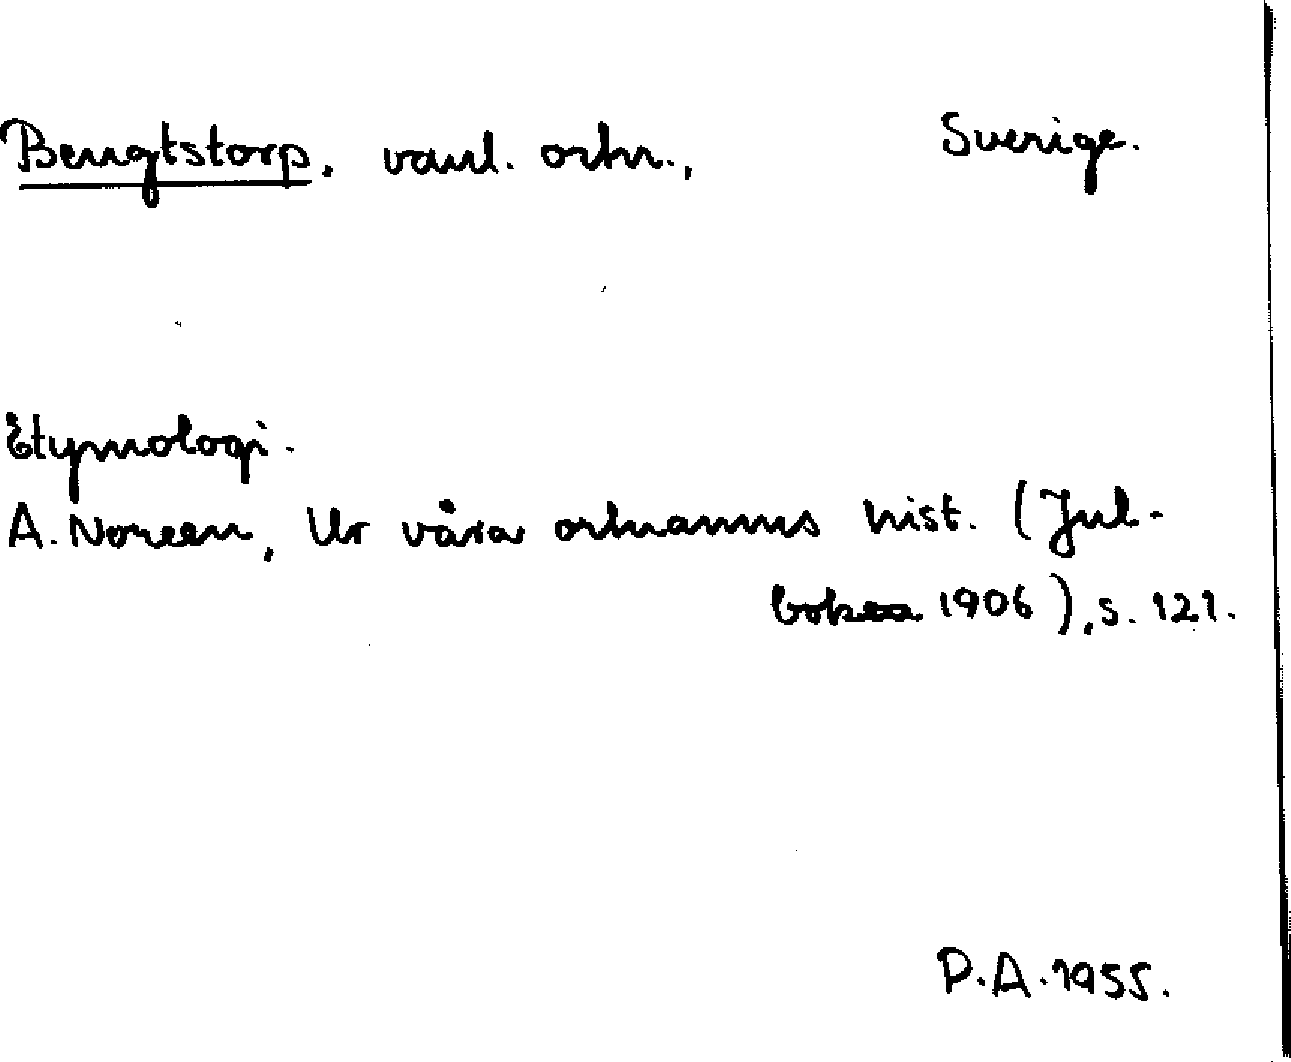 Bengtstorp, vanl. ortn., Sverige.
Etymologi.
A. Noreen, Ur våra ortnamns hist. (Jul-
boken 1906), s. 121.
P.A. 1955.